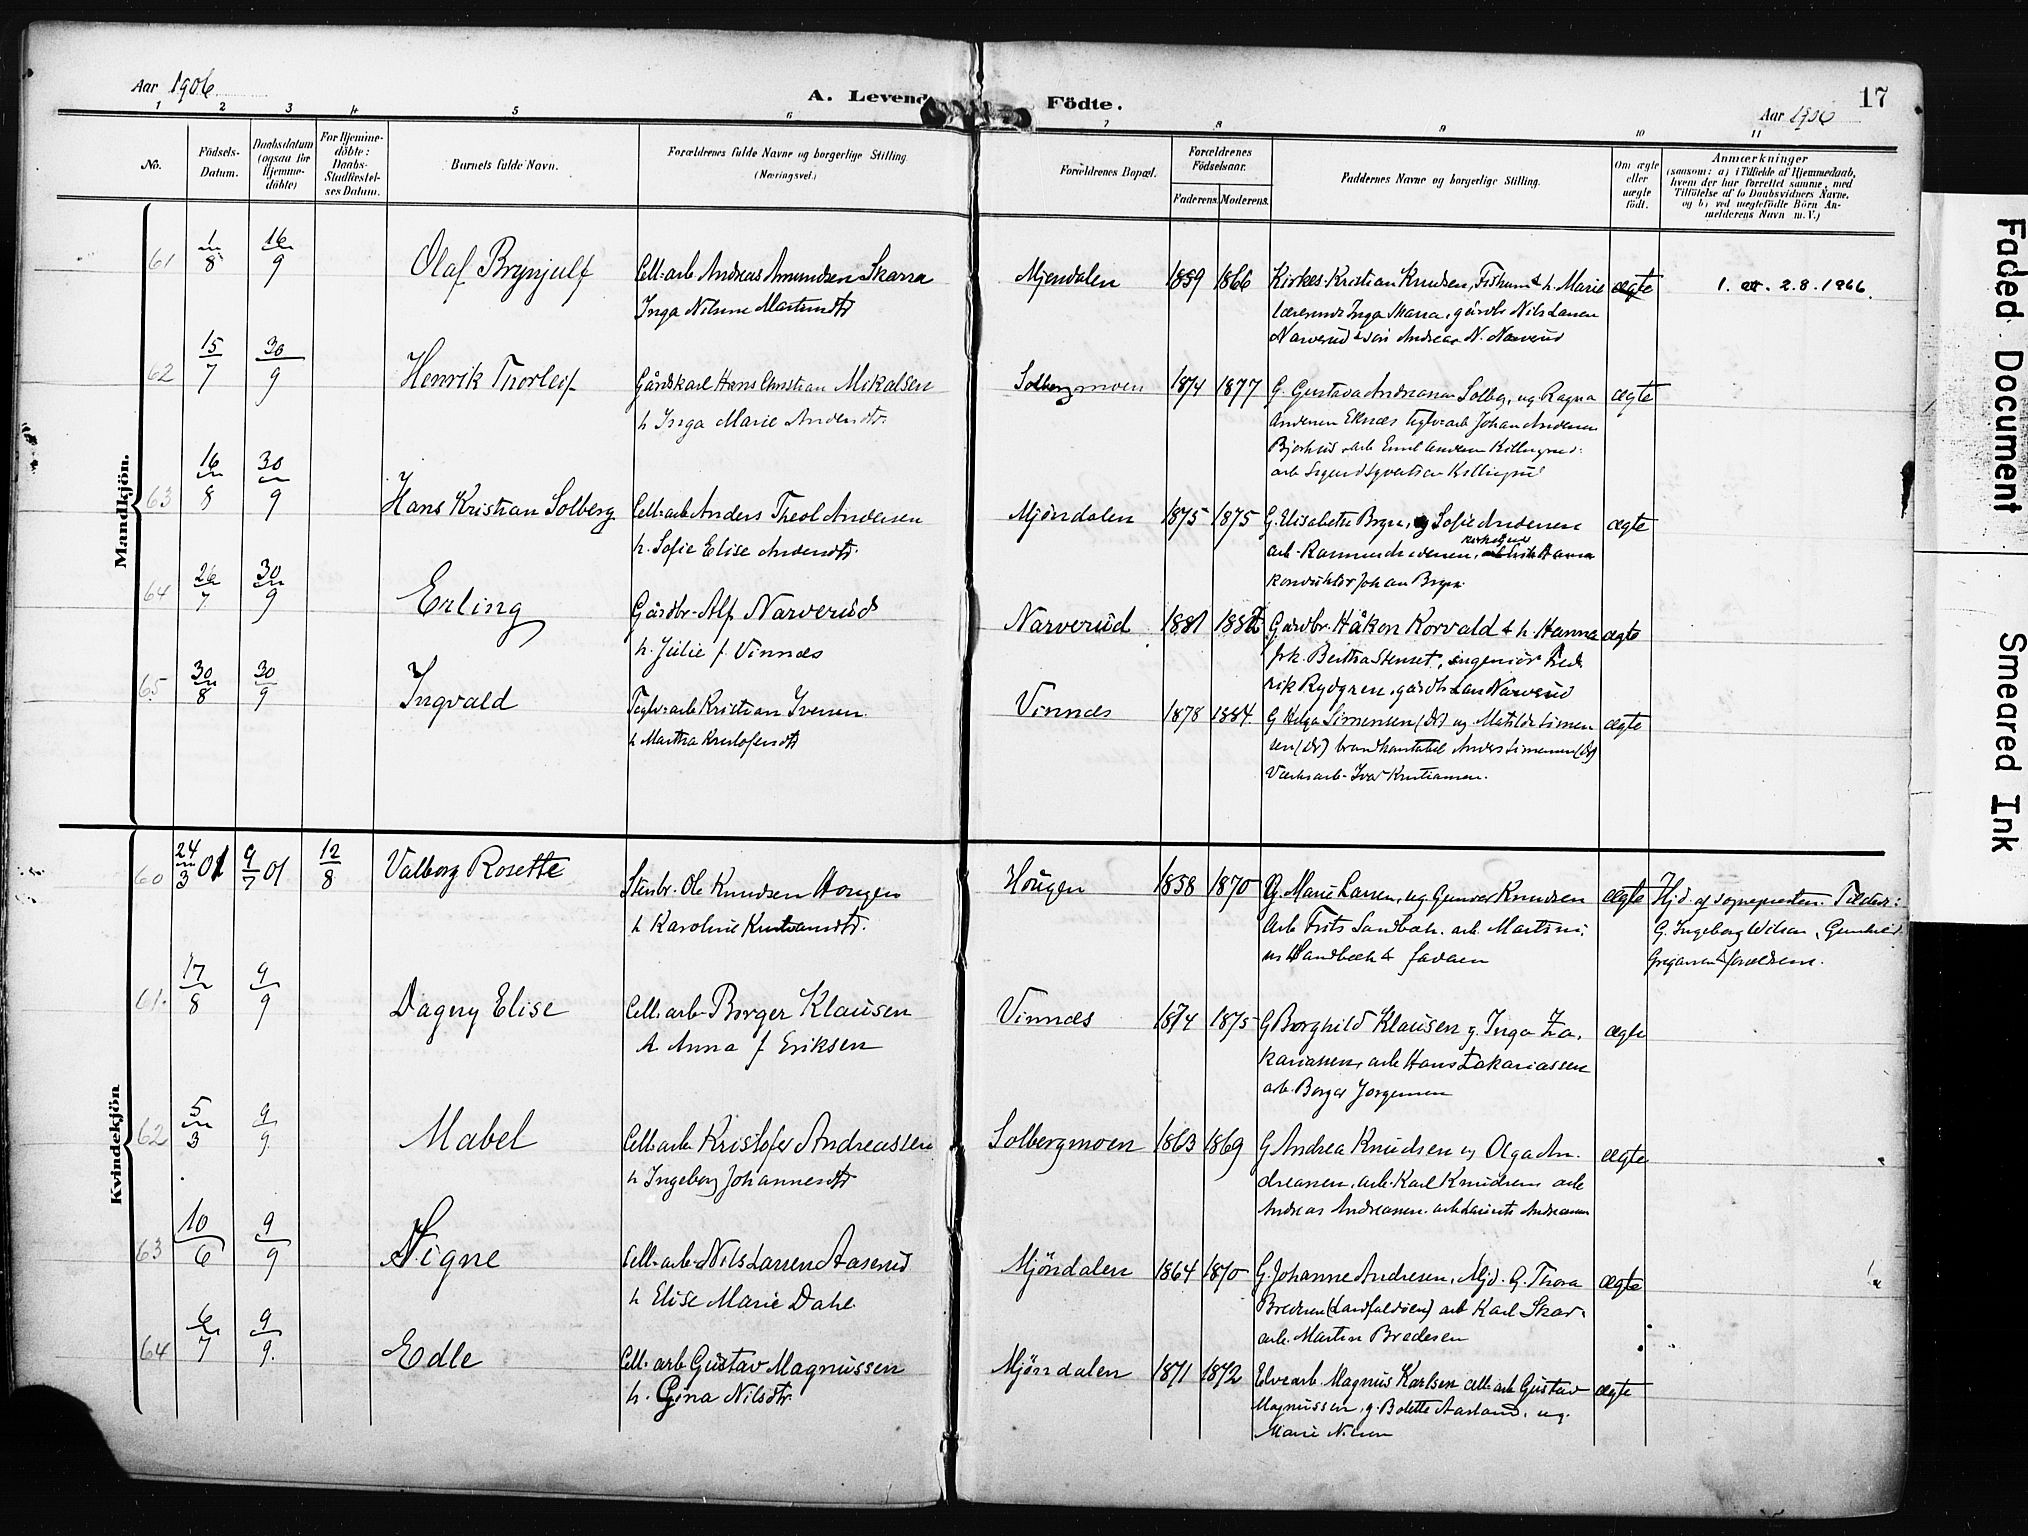 Aar 1906
A. Levende Födte.
17
Aar 1906
1 2 3 4 5 6 7 8 9 10 11
No.
Födsels-Datum.
Daabsdatum (ogsaa for Hjemme-döbte)
For Hjemme-döbte: Daabs-Stadfæstel-ses Datum.
Barnets fulde Navn.
Forældrenes fulde Navne og borgerlige Stilling (Næringsvei.)
Forældrenes Bopæl.
Forældrenes Födselsaar.
Faderens. Moderens.
Faddernes Navne og borgerlige Stilling.
Om ægte eller uægte födt.
Anmærkninger
(saasom: a) i Tilfælde af Hjemmedaab,
hvem der har forrettet samme, med
Tilföielse af to Daabsvidners Navne,
og b) ved uægtefödte Börn An-
melderens Navn m. V.)
Mandkjön.
61 1/8 16/9 Olaf Brynjulf Cell-arb Andreas Amundsen Skarra Mjøndalen 1859 1866 Kirkes. Kristian Knudsen, Fiskum & h. Marie ægte 1. att. 2.8.1966.
Inga Nilsine Martinsdtr
lærerinde Inga Skarra, gårdbr Nils Larsen
Narverud & søn Andreas N. Narverud
62 15/7 30/9 Henrik Thorleif Gårdskarl Hans Christian Mikalsen Solbergmoen 1874 1877 G. Gustava Andreasen Solbg, ug Ragna ægte
h Inga Marie Andersdtr.
Andersen Eknæs teglv-arb Johan Andersen
63 16/8 30/9 Hans Kristian Solberg Cell-arb Anders Theol Andersen Mjöndalen 1875 1875 G. Elisabeth Bryn, og Sofie Andersen ægte
h. Sofie Elise Andersdtr.
konduktör Johan Bryn.
64 26/7 30/9 Erling Gårdbr. Alf Narverud Narverud 1881 1882 Gårdbr. Håkon Korvald & h. Hanna ægte
h. Julie f. Vinnæs
frk. Bertha Stenset, ingeniör Fred
rik Rydgren, gårdb Lars Narverud
65. 30/8 30/9 Ingvald Teglv-arb Kristian Iversen Vinnæs 1878 1884. G Helga Simensen (dr) ug Matilde Simen ægte
h Martha Kristofersdtr
sen (dr) brandkonstabel Anders Simensen (dr)
Værksarb- Ivar Kristiansen.
Kvindekjön
60 24/3 01 9/7 01 12/8 Valborg Rosette Stenbr. Ole Knudsen Hougen Hougen 1858 1870 G. Marie Larsen, ug Gunvor Knudsen ægte Hjd. af sognepresten. Tilstede:
h Karoline Kristiansdtr.
Arb Frits Sandbæk. arb. Martini
us Sandbæk & faderen
G. Ingeborg Wilson, Gunhild
Gregersen & forældrene.
61. 17/8 9/9 Dagny Elise Cell. arb- Borger Klausen Vinnæs 1874 1875 G Borghild Klausen g. Inga Za- ægte
h Anna f Eriksen
kariassen, arb Hans Zakariassen
arb. Borger Jorgensen
62 5/3 9/9. Mabel Cell-arb Kristofer Andreassen Solbergmoen 1863 1869 G Andrea Knudsen og Olga An- ægte
h Ingeborg Johannesdtr
dreasen, arb- Karl Knudsen arb
Andreas Andreasen. arb Laurits Andreasen
63 10/6 9/9 Signe Cell-arb- Nils Larsen Aaserud Mjöndalen 1864 1870 G. Johanne Andresen, Mjd. G. Thora ægte
h Elise Marie Dahl
Bredesen (Landfaldöen) arb Karl Skar.
arb. Martin Bredesen
64 6/7 9/9. Edle Cell- arb Gustav Magnussen Mjöndalen 1871 1872 Elvearb. Magnus Karlsen cell-arb Gustav ægte
h. Gina Nilsdtr.
Magnussen, g. Bolette Aasland, ug.
Marie Nilsen
Faded Document
Smeared Ink